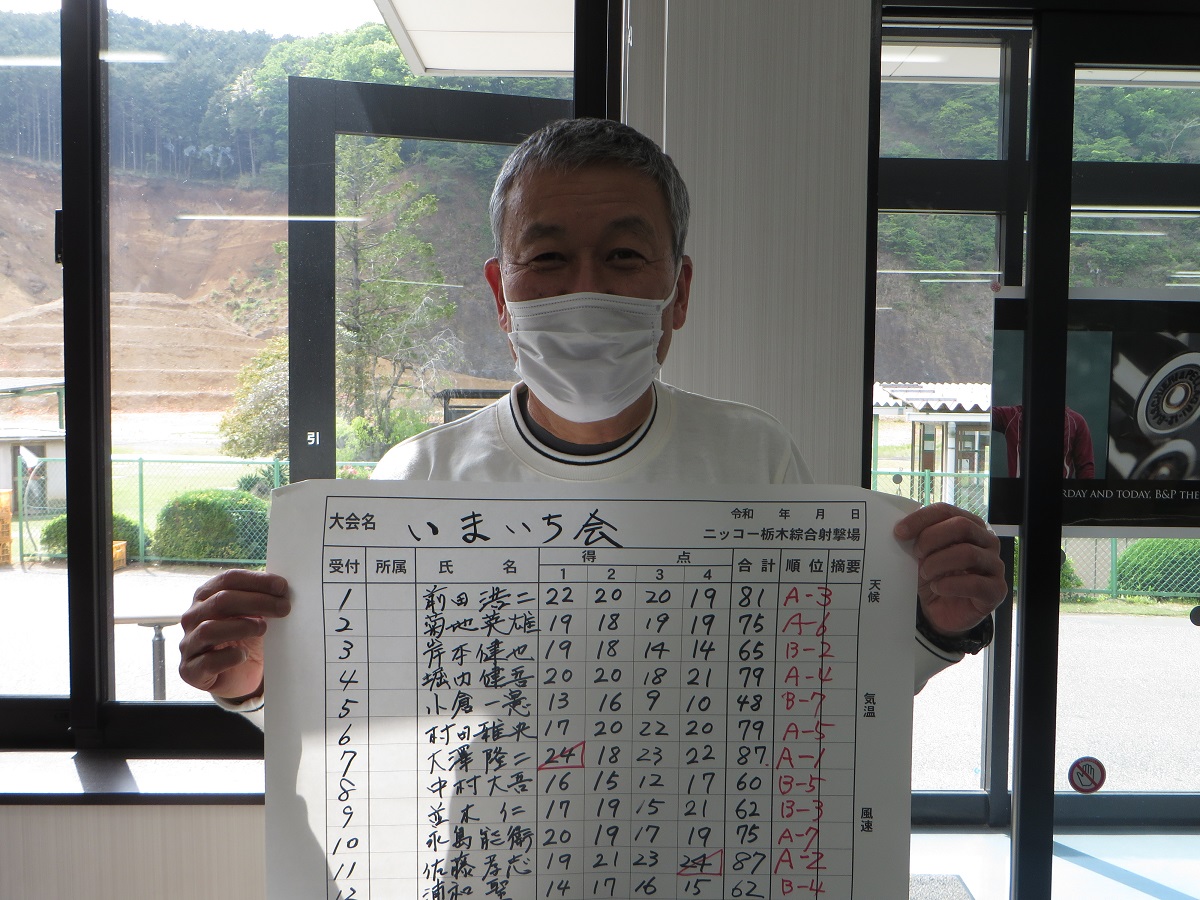 引
大会名 いまいち会 令和 年 月 日
ニッコー栃木綜合射撃場
受付 所属 氏 名 得 点 合計 順位 摘要
1 2 3 4
天候
1 前田浩二 22 20 20 19 81 A-3
2 菊地英雄 19 18 19 19 75 A-6
3 岸本健也 19 18 14 14 65 B-2
4 堀内健吾 20 20 18 21 79 A-4
5 小倉一憲 13 16 9 10 48 B-7
気温
6 村田雅央 17 20 22 20 79 A-5
7 大澤隆二 24 18 23 22 87 A-1
8 中村大吾 16 15 12 17 60 B-5
9 並木仁 17 19 15 21 62 B-3
風速
10 永島能衛 20 19 17 19 75 A-7
11 佐藤孝志 19 21 23 24 87 A-2
12 浦和聖 14 17 16 15 62 B-4
RDAY AND TODAY, B&P THE